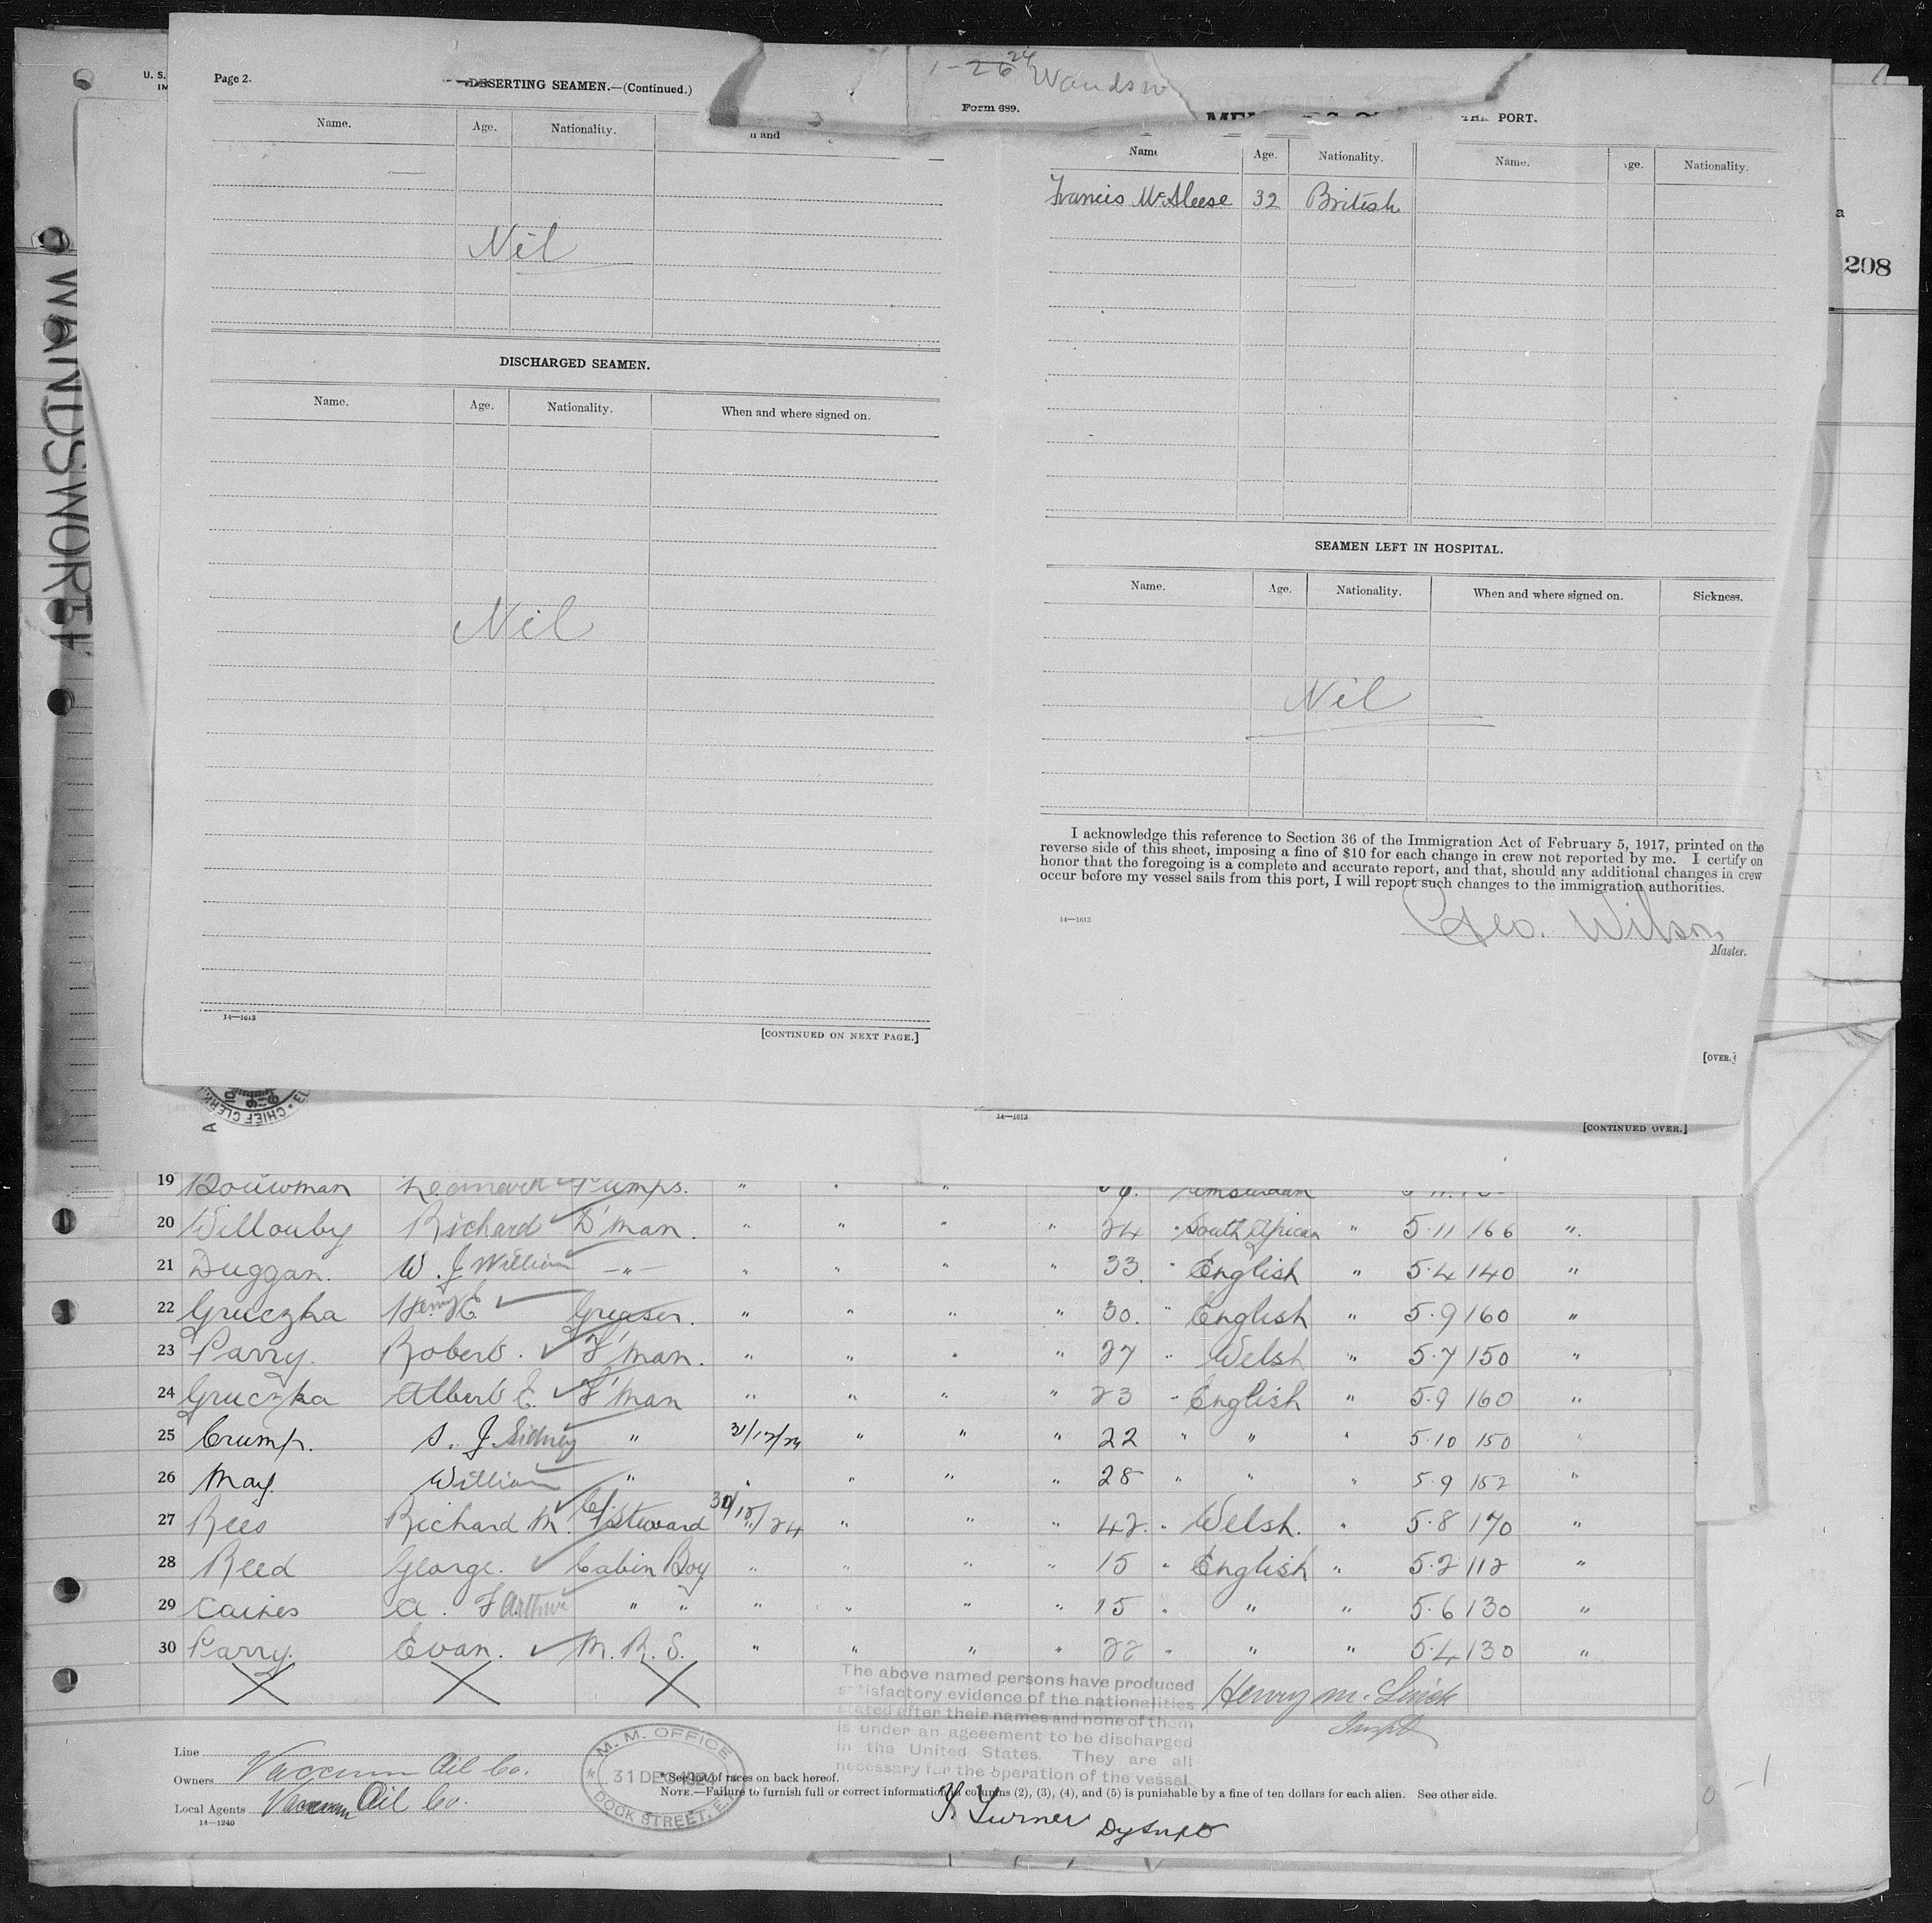 U. S.
IM
Page 2.
DESERTING SEAMEN.—(Continued.)
Name. Age. Nationality.
and
Nil
DISCHARGED SEAMEN.
Name. Age. Nationality. When and where signed on.
Nil
14—1613
[CONTINUED ON NEXT PAGE.]
WANDSWORTH
1-26 24 Wandsw
Form 689.
THE PORT.
Name Age. Nationality. Name. Age. Nationality.
Francis McAleese 32 British
SEAMEN LEFT IN HOSPITAL.
Name. Age. Nationality. When and where signed on. Sickness.
Nil
I acknowledge this reference to Section 36 of the Immigration Act of February 5, 1917, printed on the
reverse side of this sheet, imposing a fine of $10 for each change in crew not reported by me. I certify on
honor that the foregoing is a complete and accurate report, and that, should any additional changes in crew
occur before my vessel sails from this port, I will report such changes to the immigration authorities.
14—1613
Geo. Wilson
Master.
[OVER.]
a
208
CHIEF CLERK
A
14—1613
[CONTINUED OVER.]
19 Bouwman Leonard Pumps. " " "
20 Willouby Richard D'man. " " " " 24 " South African " 5.11 166 "
21 Duggan. W. J William —"— " " " " 33 " English " 5.4 140 "
22 Gruczka Henry E Greaser. " " " " 30. " English " 5.9 160 "
23 Parry. Robert. F'man. " " " " 27 " Welsh " 5.7 150 "
24 Gruczka Albert E. F'man " " " 23 " English " 5.9 160 "
25 Crump. S. J. Sidney " 31/12/24 " " " 22 " " " 5.10 150 "
26 May. William " " " " " 28 " " " 5.9 152 "
27 Rees Richard M. Cf. Steward 30/12/24 " " " 42. " Welsh. " 5.8 170 "
28 Reed George. Cabin Boy " " " " 15 " English " 5.2 112 "
29 Caines A. F Arthur " " " " " " 15 " " " 5.6 130 "
30 Parry. Evan. M. R. S. " " " " 22 " " " 5.4 130 "
The above named persons have produced
satisfactory evidence of the nationalities
stated after their names and none of them
is under an ageeement to be discharged
in the United States. They are all
necessary for the operation of the vessel
Henry M.
Line
Owners Vaccum Oil Co.
Local Agents Vacuum Oil Co.
14—1240
M. M. OFFICE
31 DEC 1924
DOCK STREET, E.
* See list of races on back hereof.
NOTE.—Failure to furnish full or correct information in columns (2), (3), (4), and (5) is punishable by a fine of ten dollars for each alien. See other side.
Turner Dy Supt